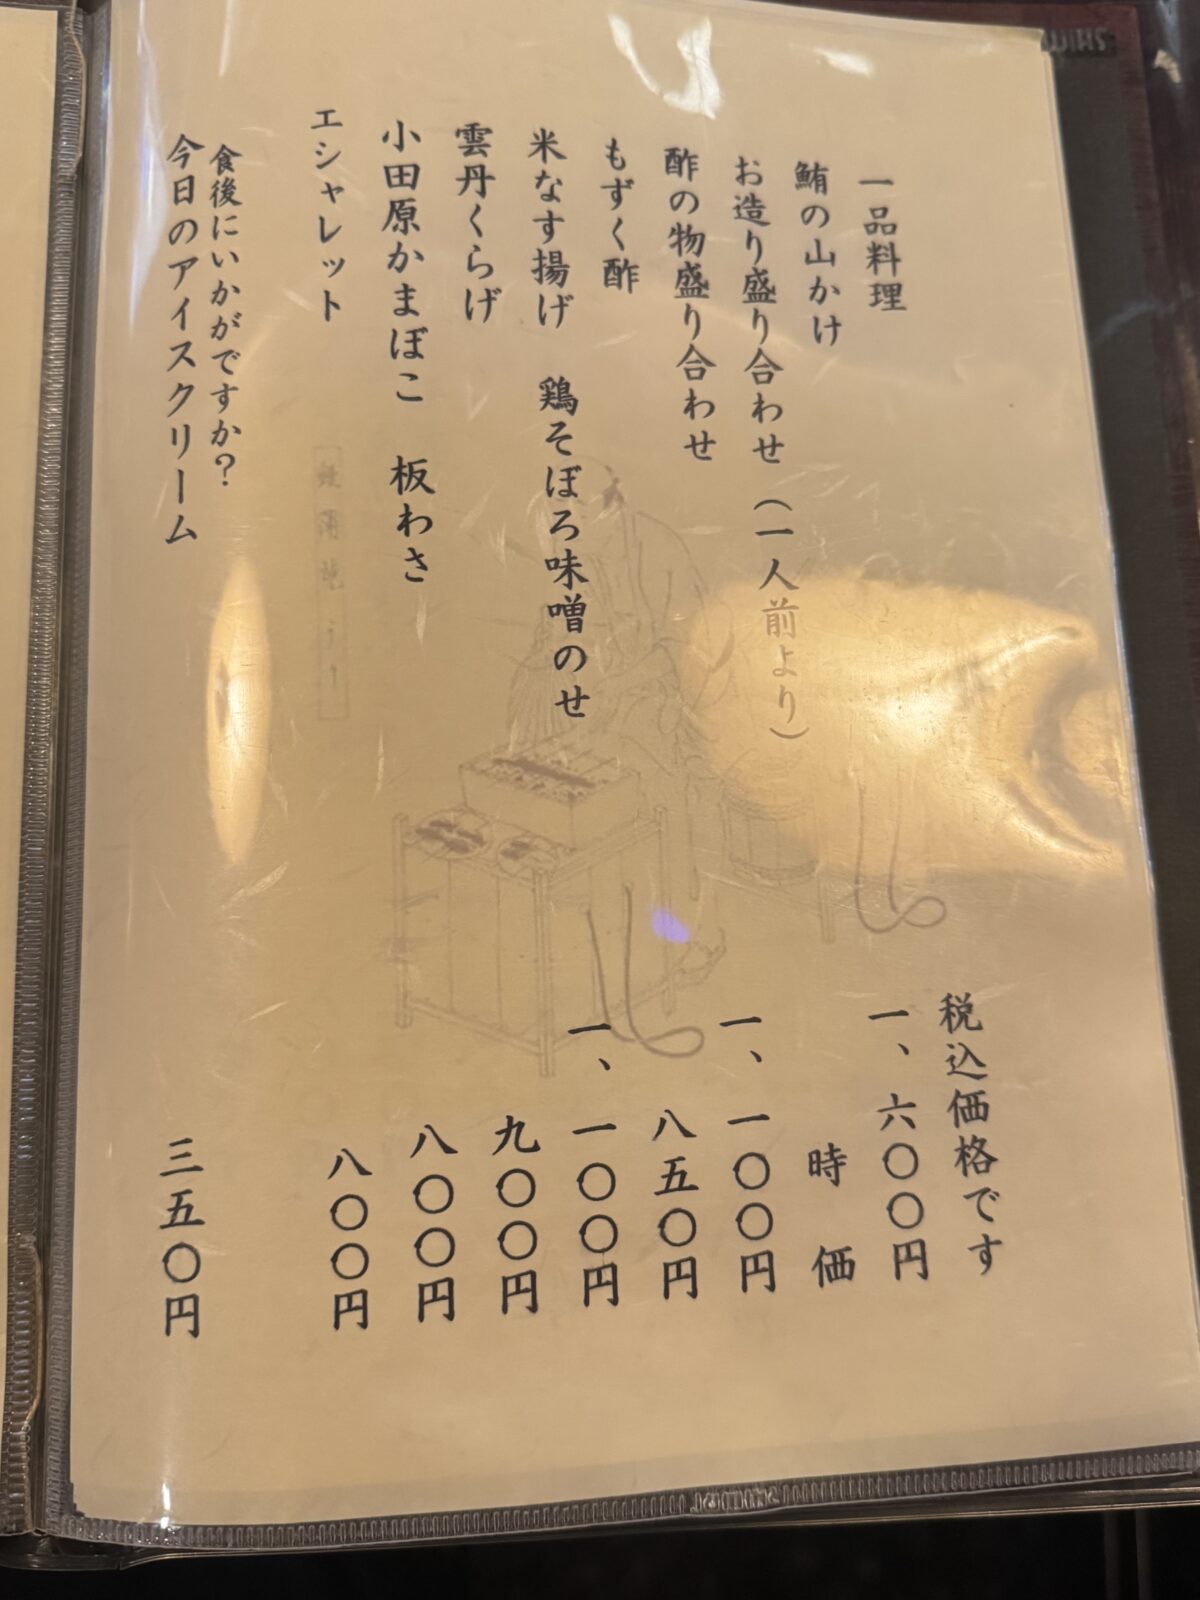 税込価格です
一品料理
鮪の山かけ 一、六〇〇円
お造り盛り合わせ（一人前より） 時価
酢の物盛り合わせ 一、一〇〇円
もずく酢 八五〇円
米なす揚げ 鶏そぼろ味噌のせ 一、一〇〇円
雲丹くらげ 九〇〇円
小田原かまぼこ 板わさ 八〇〇円
エシャレット 八〇〇円
食後にいかがですか？
今日のアイスクリーム 三五〇円